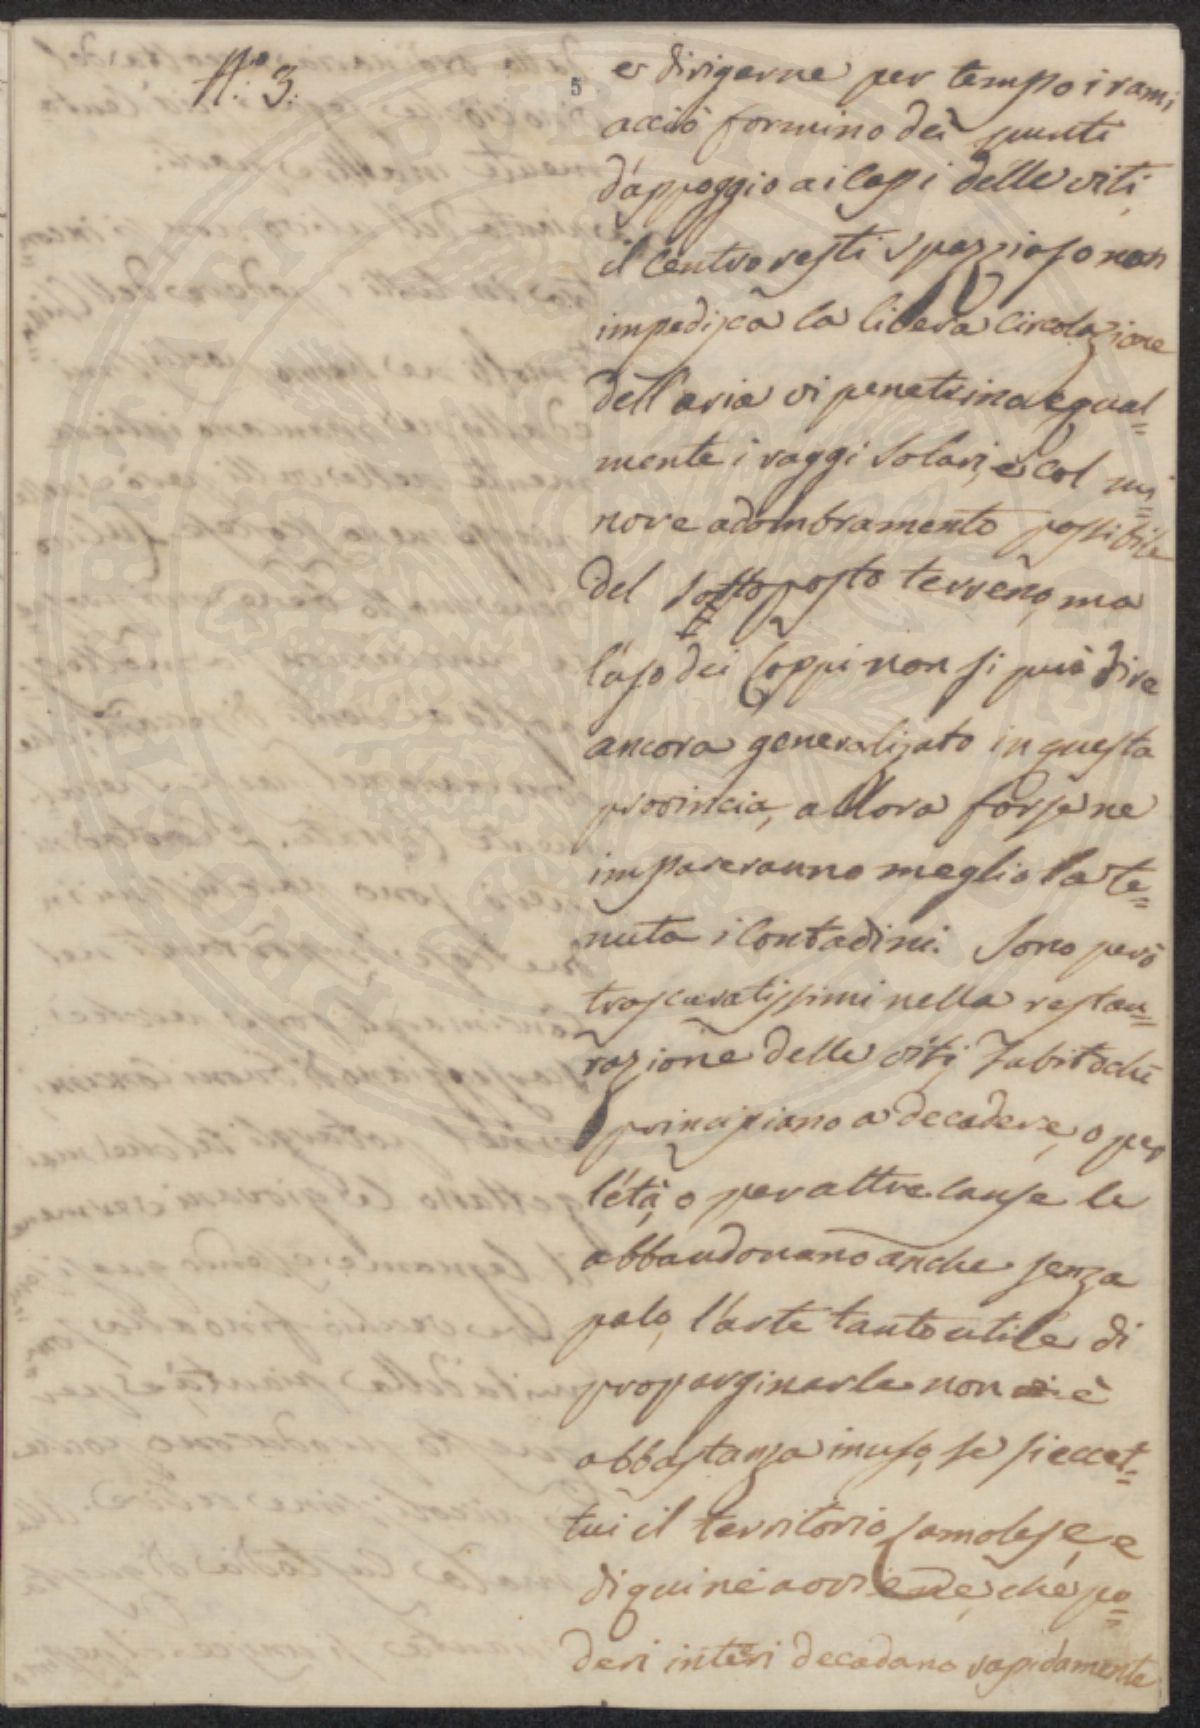 N.° 3.
5
e dirigerne per tempo i rami
acciò formino dei punti
d'appoggio ai capi delle viti,
il centro resti spazzioso non
impedisca la libera circolazione
dell'aria vi penetrino egual=
mente i raggi solari, e col mi=
nore adombramento possibile
del sottoposto terreno, ma
l'uso dei loppi non si può dire
ancora generalizato in questa
provincia, allora forse ne
impareranno meglio la te=
nuta i contadini. Sono però
trascuratissimi nella restau=
razione delle viti, subito chè
principiano a decadere, o per
l'età, o per altre cause le
abbandonano anche senza
palo, l'arte tanto utile di
proparginarle non è
abbastanza in uso, se si eccet=
tui il territorio Jamolese, e
di qui ne avviene, che po=
deri interi decadano rapidamente